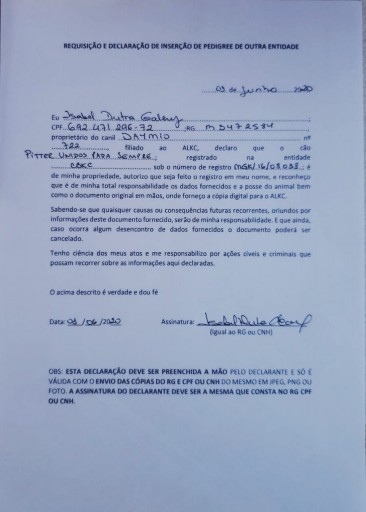 REQUISIÇÃO E DECLARAÇÃO DE INSERÇÃO DE PEDIGREE DE OUTRA ENTIDADE
de Junho 2020
Eu Isabel Dutra
CPF 692 471 296-72 ;RG M3472584
proprietário do canil DAYMIO nº
722, filiado ao ALKC, declaro que o cão
PITTER UNIDOS PARA SEMPRE, registrado na entidade
CBKC sob o número de registro ; é
de minha propriedade, autorizo que seja feito o registro em meu nome, e reconheço
que é de minha total responsabilidade os dados fornecidos e a posse do animal bem
como o documento original em mãos, onde forneço a cópia digital para o ALKC.
Sabendo-se que quaisquer causas ou consequências futuras recorrentes, oriundos por
informações deste documento fornecido, serão de minha responsabilidade. E que ainda,
caso ocorra algum desencontro de dados fornecidos o documento poderá ser
cancelado.
Tenho ciência dos meus atos e me responsabilizo por ações cíveis e criminais que
possam recorrer sobre as informações aqui declaradas.
O acima descrito é verdade e dou fé
Data: /06/2020 Assinatura:
(Igual ao RG ou CNH)
OBS: ESTA DECLARAÇÃO DEVE SER PREENCHIDA A MÃO PELO DECLARANTE E SÓ É
VÁLIDA COM O ENVIO DAS CÓPIAS DO RG E CPF OU CNH DO MESMO EM JPEG, PNG OU
FOTO. A ASSINATURA DO DECLARANTE DEVE SER A MESMA QUE CONSTA NO RG CPF
OU CNH.